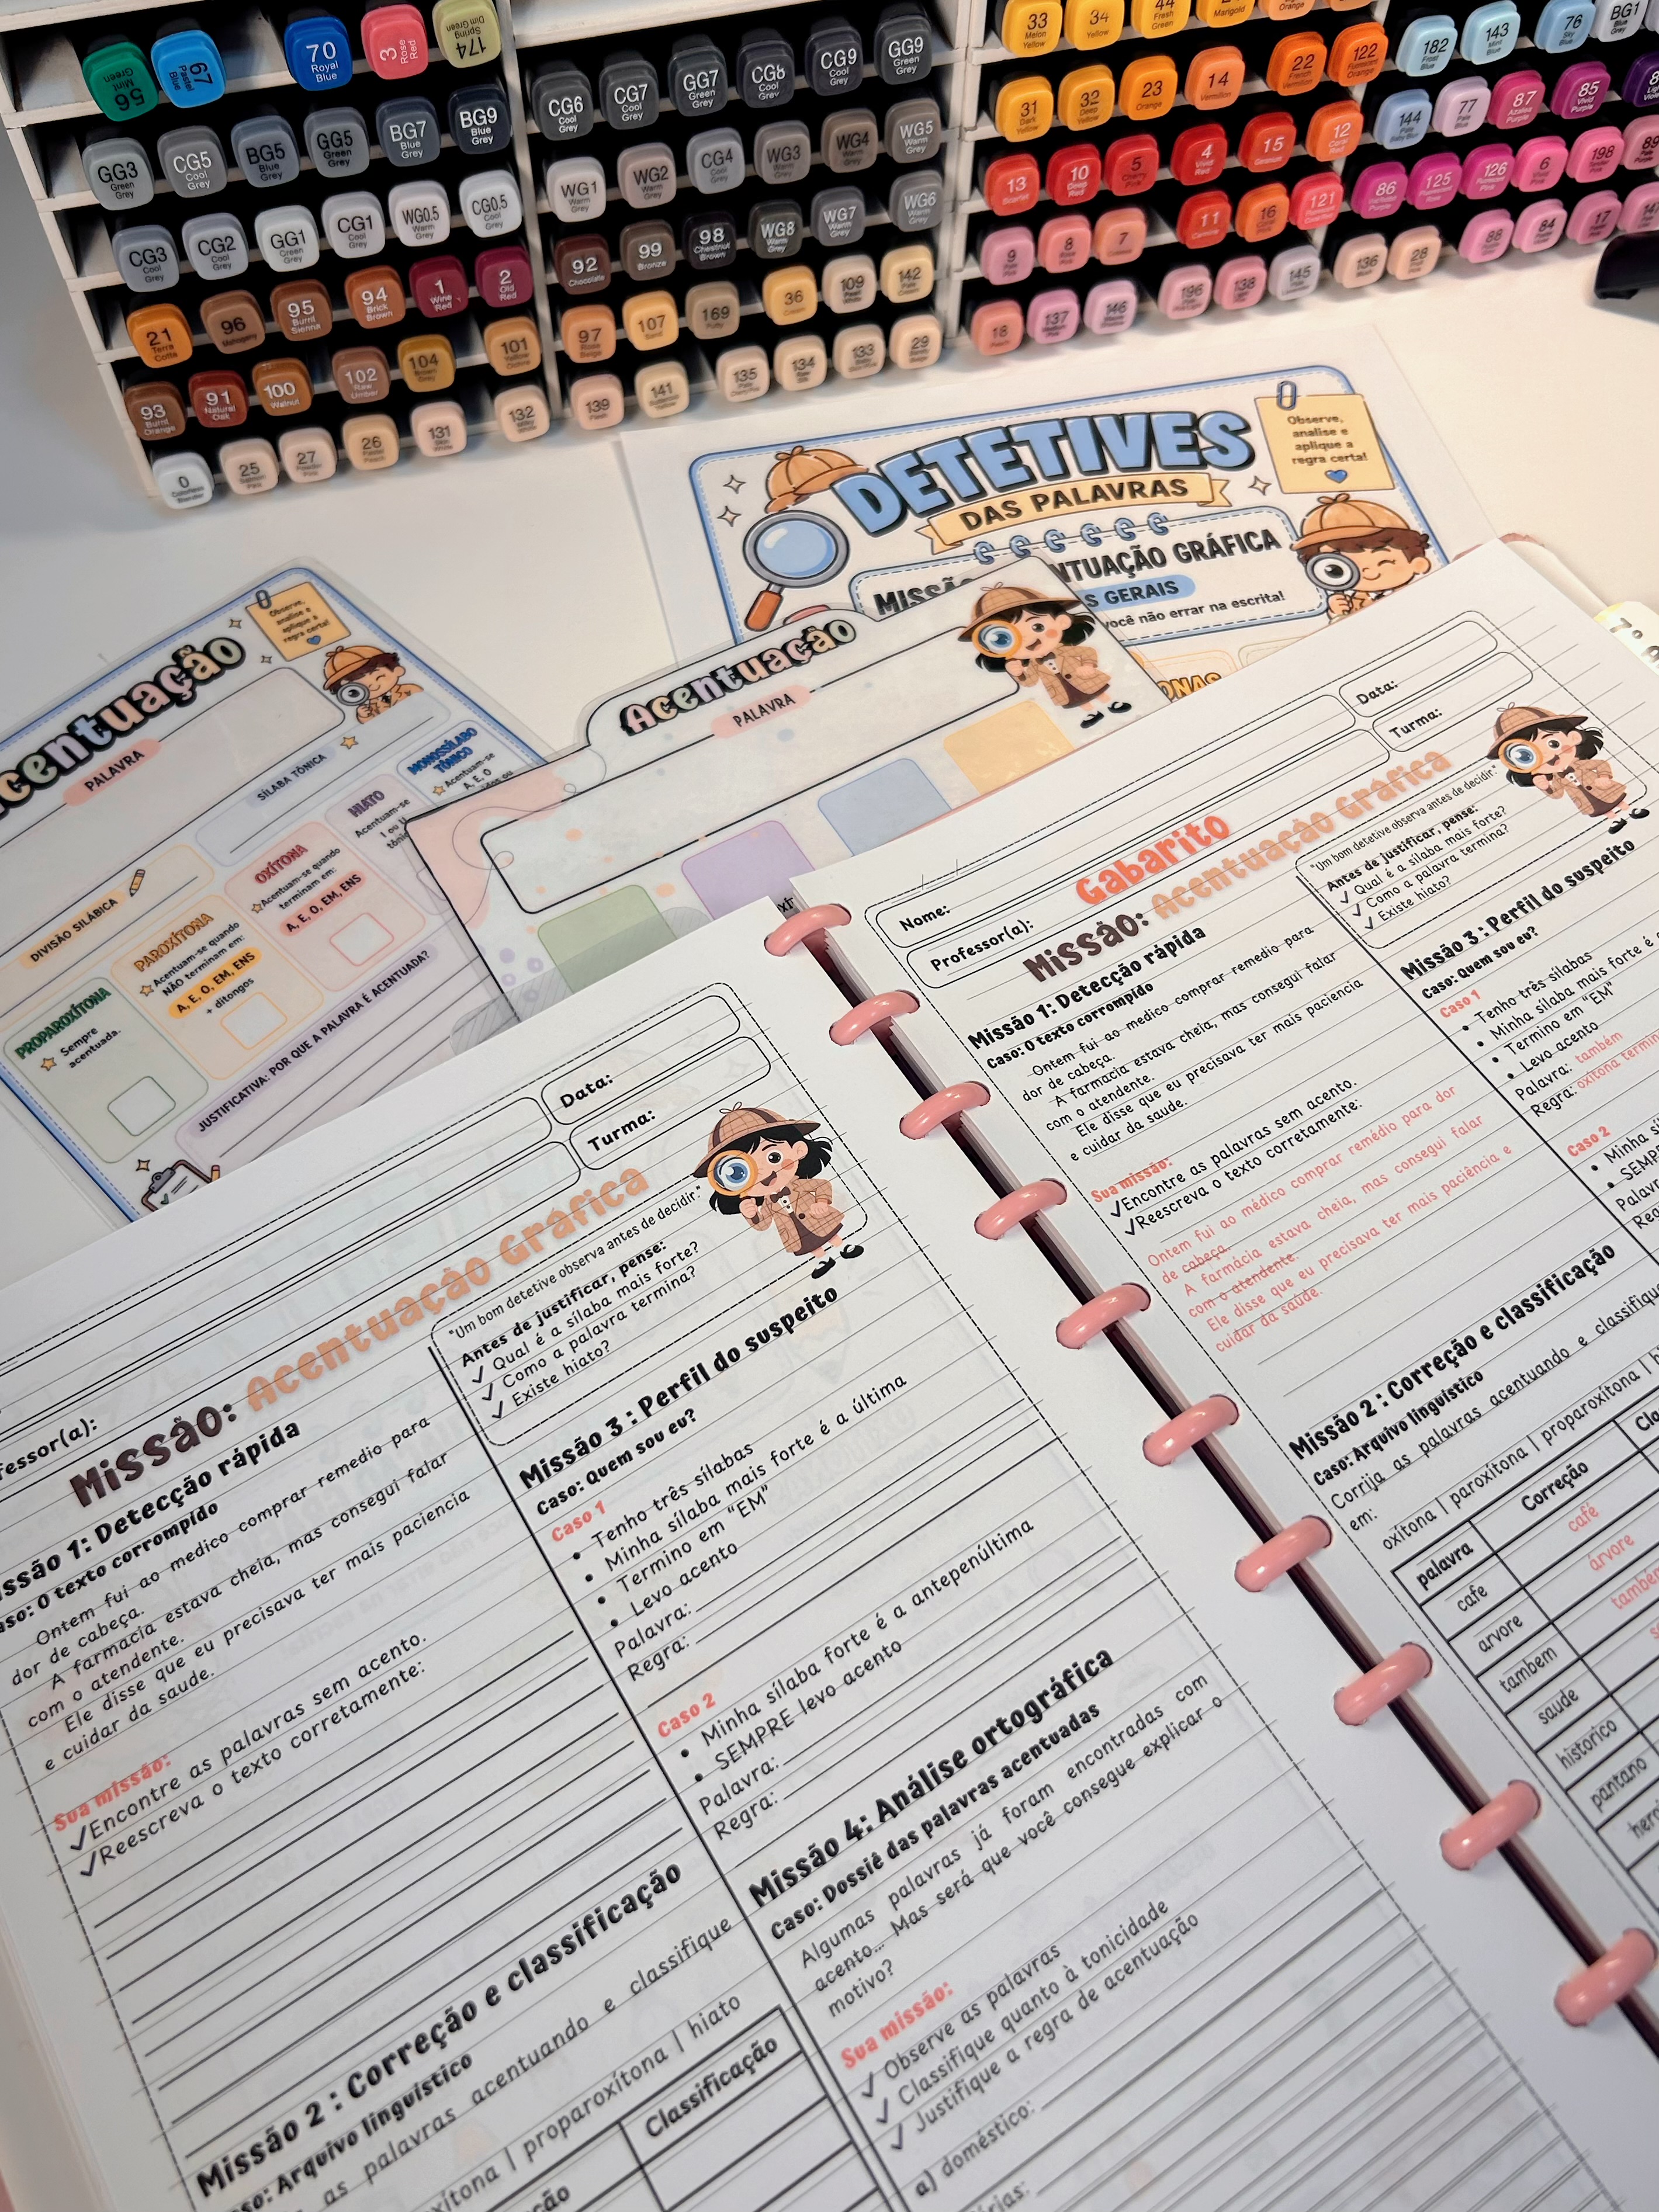 56 Mint Green
67 Pastel Blue
70 Royal Blue
3 Rose Red
174 Spring Dim Green
GG3 Green Grey
CG5 Cool Grey
BG5 Blue Grey
GG5 Green Grey
BG7 Blue Grey
BG9 Blue Grey
CG3 Cool Grey
CG2 Cool Grey
GG1 Green Grey
CG1 Cool Grey
WG0.5 Warm Grey
CG0.5 Cool Grey
21 Terra Cotta
96 Mahogany
95 Burnt Sienna
94 Brick Brown
1 Wine Red
2 Old Red
93 Burnt Orange
91 Natural Oak
100 Walnut
102 Raw Umber
104
101 Yellow Ochre
0 Colorless Blender
25 Salmon Pink
27 Powder Pink
26 Pastel Peach
131
132
CG6 Cool Grey
CG7 Cool Grey
GG7 Green Grey
CG8 Cool Grey
CG9 Cool Grey
GG9 Green Grey
WG1 Warm Grey
WG2 Warm Grey
CG4 Cool Grey
WG3 Warm Grey
WG4 Warm Grey
WG5 Warm Grey
92 Chocolate
99 Bronze
98 Chestnut Brown
WG8 Warm Grey
WG7 Warm Grey
WG6 Warm Grey
97 Rose Beige
107 Sand
169 Putty
36
109
142
139
141
135
134
133
29
33 Melon Yellow
34 Yellow
44 Fresh Green
Marigold
Orange
31 Dark Yellow
32 Deep Yellow
23 Orange
14 Vermilion
22 French
122
13 Scarlet
10 Deep Red
5 Cherry Pink
4 Vivid Red
15 Geranium
12 Coral Red
9
8 Rose Pink
7
11 Carmine
16
121
18
137
146
196
138
145
136
28
182 Frost Blue
143 Mint Blue
76 Sky Blue
BG1
144 Pale Baby Blue
77 Pale Blue
87 Azalea Purple
85 Vivid Purple
86
125
126
6 Vivid Pink
198
89
84
17
DETETIVES
DAS PALAVRAS
Observe,
analise e
aplique a
regra certa!
NTUAÇÃO GRÁFICA
S GERAIS
você não errar na escrita!
centuação
Observe,
analise e
aplique a
regra certa!
PALAVRA
SÍLABA TÔNICA
DIVISÃO SILÁBICA
PROPAROXÍTONA
Sempre
acentuada.
PAROXÍTONA
Acentuam-se quando
NÃO terminam em:
A, E, O, EM, ENS
+ ditongos
OXÍTONA
Acentuam-se quando
terminam em:
A, E, O, EM, ENS
HIATO
Acentuam-se
MONOSSÍLABO
TÔNICO
Acentuam-se
A, E, O
JUSTIFICATIVA: POR QUE A PALAVRA É ACENTUADA?
Acentuação
PALAVRA
fessor(a):
Data:
Turma:
Missão: Acentuação Gráfica
ssão 1: Detecção rápida
aso: O texto corrompido
Ontem fui ao medico comprar remedio para
dor de cabeça.
A farmacia estava cheia, mas consegui falar
com o atendente.
Ele disse que eu precisava ter mais paciencia
e cuidar da saude.
Sua missão:
✓Encontre as palavras sem acento.
✓Reescreva o texto corretamente:
Missão 2 : Correção e classificação
aso: Arquivo linguístico
as palavras acentuando e classifique
xítona | proparoxítona | hiato
ção
Classificação
"Um bom detetive observa antes de decidir."
Antes de justificar, pense:
✓ Qual é a sílaba mais forte?
✓ Como a palavra termina?
✓ Existe hiato?
Missão 3 : Perfil do suspeito
Caso: Quem sou eu?
Caso 1
• Tenho três sílabas
• Minha sílaba mais forte é a última
• Termino em "EM"
• Levo acento
Palavra:
Regra:
Caso 2
• Minha sílaba forte é a antepenúltima
• SEMPRE levo acento
Palavra:
Regra:
Missão 4: Análise ortográfica
Caso: Dossiê das palavras acentuadas
Algumas palavras já foram encontradas com
acento... Mas será que você consegue explicar o
motivo?
Sua missão:
✓ Observe as palavras
✓ Classifique quanto à tonicidade
✓ Justifique a regra de acentuação
a) doméstico:
Nome:
Data:
Professor(a):
Turma:
Gabarito
Missão: Acentuação Gráfica
Missão 1: Detecção rápida
Caso: O texto corrompido
Ontem fui ao medico comprar remedio para
dor de cabeça.
A farmacia estava cheia, mas consegui falar
com o atendente.
Ele disse que eu precisava ter mais paciencia
e cuidar da saude.
Sua missão:
✓Encontre as palavras sem acento.
✓Reescreva o texto corretamente:
Ontem fui ao médico comprar remédio para dor
de cabeça.
A farmácia estava cheia, mas consegui falar
com o atendente.
Ele disse que eu precisava ter mais paciência e
cuidar da saúde.
Missão 2 : Correção e classificação
Caso: Arquivo linguístico
Corrija as palavras acentuando e classifique
em:
oxítona | paroxítona | proparoxítona | hi
palavra
Correção
Cla
cafe
café
arvore
árvore
tambem
também
saude
historico
pantano
"Um bom detetive observa antes de decidir."
Antes de justificar, pense:
✓ Qual é a sílaba mais forte?
✓ Como a palavra termina?
✓ Existe hiato?
Missão 3 : Perfil do suspeito
Caso: Quem sou eu?
Caso 1
• Tenho três sílabas
• Minha sílaba mais forte é a
• Termino em "EM"
• Levo acento
Palavra: também
Regra: oxítona termin
Caso 2
• Minha sí
• SEMPRE
Palavr
Reg